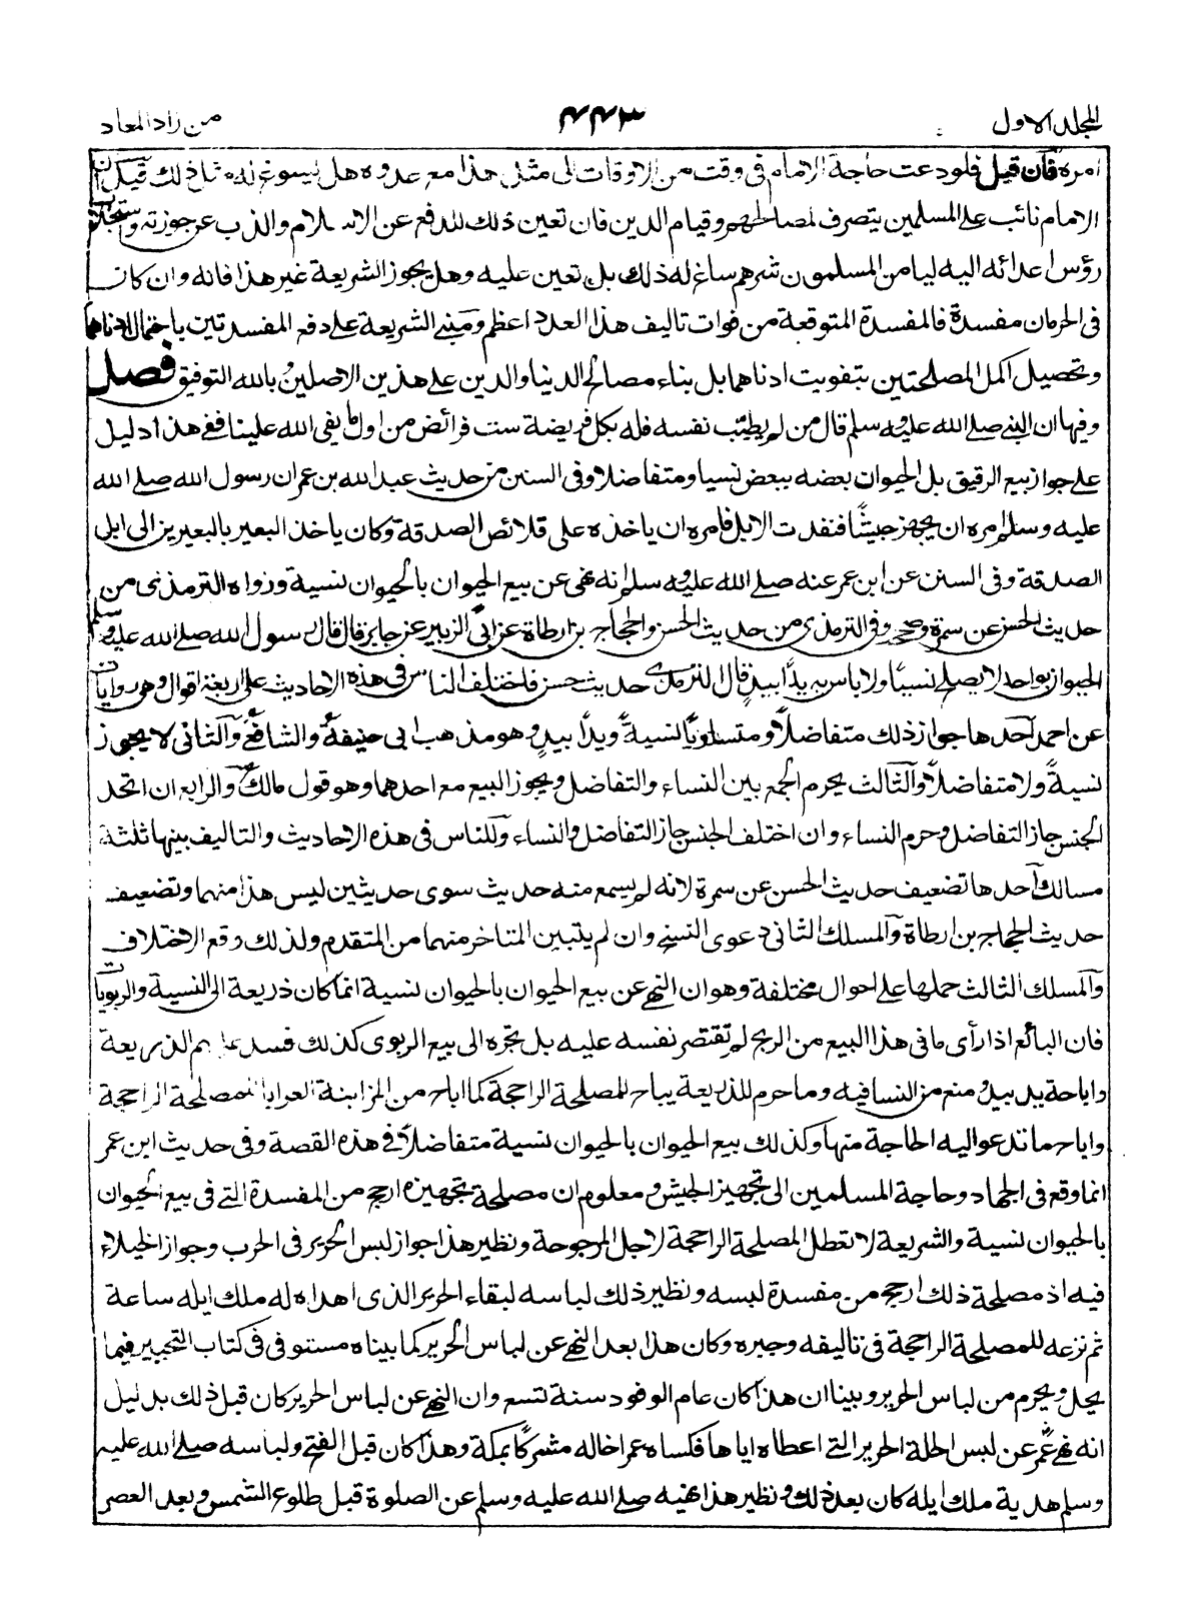 المجلد الاول
٤٤٣
من زاد المعاد
امره فان قيل فلودعت حاجة الامام فى وقت من الاوقات الى مثل هذا مع عدوه هل يسوغ له ذلك قيل
الامام نائب على المسلمين يتصرف لمصالحهم وقيام الدين فان تعين ذلك للدفع عن الاسلام والذب عن حوزته واستجلاب
رؤس اعدائه اليه ليامن المسلمون شرهم ساغ له ذلك بل تعين عليه وهل يجوز الشريعة غير هذا فانه وان كان
فى الحرمان مفسدة فالمفسدة المتوقعة من فوات تاليف هذا العدد اعظم ومبنى الشريعة على دفع المفسدتين باحتمال ادناهما
وتحصيل اكمل المصلحتين بتفويت ادناهما بل بناء مصالح الدنيا والدين على هذين الاصلين وبالله التوفيق فصل
وفيها ان النبى صلى الله عليه وسلم قال من لم يطيب نفسه فله بكل فريضة ست فرائض من اول ما يفى الله علينا ففى هذا دليل
على جواز بيع الرقيق بل الحيوان بعضه ببعض نسيا ومتفاضلا وفى السنن من حديث عبد الله بن عمر ان رسول الله صلى الله
عليه وسلم امره ان يجهز جيشًا فنفدت الابل فامره ان ياخذه على قلائص الصدقة وكان ياخذ البعير بالبعيرين الى ابل
الصدقة وفى السنن عن ابن عمر عنه صلى الله عليه وسلم انه نهى عن بيع الحيوان بالحيوان نسية ورواه الترمذى من
حديث الحسن عن سمرة وصححه وفى الترمذى من حديث الحسن والحجاج بن ارطاة عن ابى الزبير عن جابر قال قال رسول الله صلى الله عليه وسلم
الحيوان بواحد لا يصلح نسيًا ولا باس به يدًا بيدٍ قال الترمذى حديث حسن فاختلف الناس فى هذه الاحاديث على اربعة اقوال وهو روايات
عن احمد احدها جواز ذلك متفاضلًا ومتساويًا نسيةً ويدًا بيدٍ وهو مذهب ابى حنيفة والشافعى والثانى لا يجوز
نسيةً ولا متفاضلًا والثالث يحرم الجمع بين النساء والتفاضل ويجوز البيع مع احدهما وهو قول مالك والرابع ان اتحد
الجنس جاز التفاضل وحرم النساء وان اختلف الجنس جاز التفاضل والنساء وللناس فى هذه الاحاديث والتاليف بينها ثلثة
مسالك احدها تضعيف حديث الحسن عن سمرة لانه لم يسمع منه حديث سوى حديثين ليس هذا منهما وتضعيف
حديث الحجاج بن ارطاة والمسلك الثانى دعوى النسخ وان لم يتبين المتاخر منهما من المتقدم ولذلك وقع الاختلاف
والمسلك الثالث حملها على احوال مختلفة وهو ان النهى عن بيع الحيوان بالحيوان نسية انما كان ذريعة الى النسية والربويات
فان البائع اذا رأى ما فى هذا البيع من الربح لم تقتصر نفسه عليه بل تجره الى بيع الربوى كذلك فسد عليهم الذريعة
واباحة يد بيد ومنع من النسا فيه وما حرم للذريعة يباح للمصلحة الراجحة كما اباح من المزابنة العرايا للمصلحة الراجحة
واباح ما تدعو اليه الحاجة منها وكذلك بيع الحيوان بالحيوان نسية متفاضلًا فى هذه القصة وفى حديث ابن عمر
انما وقع فى الجهاد وحاجة المسلمين الى تجهيز الجيش ومعلوم ان مصلحة تجهيزه ارجح من المفسدة التى فى بيع الحيوان
بالحيوان نسية والشريعة لا تعطل المصلحة الراجحة لاجل المرجوحة ونظير هذا جواز لبس الحرير فى الحرب وجواز الخيلاء
فيه اذ مصلحة ذلك ارجح من مفسدة لبسه ونظير ذلك لباسه لبقاء الحرير الذى اهداه له ملك ايله ساعة
ثم نزعه للمصلحة الراجحة فى تاليفه وجبره وكان هذا بعد النهى عن لباس الحرير كما بيناه مستوفى فى كتاب التحبير فيما
يحل ويحرم من لباس الحرير وبينا ان هذا كان عام الوفود سنة تسع وان النهى عن لباس الحرير كان قبل ذلك بدليل
انه نهى عمر عن لبس الحلة الحرير التى اعطاه اياها فكساه عمر اخا له مشركًا بمكة وهذا كان قبل الفتح ولباسه صلى الله عليه
وسلم هدية ملك ايله كان بعد ذلك ونظير هذا نهيه صلى الله عليه وسلم عن الصلوة قبل طلوع الشمس وبعد العصر